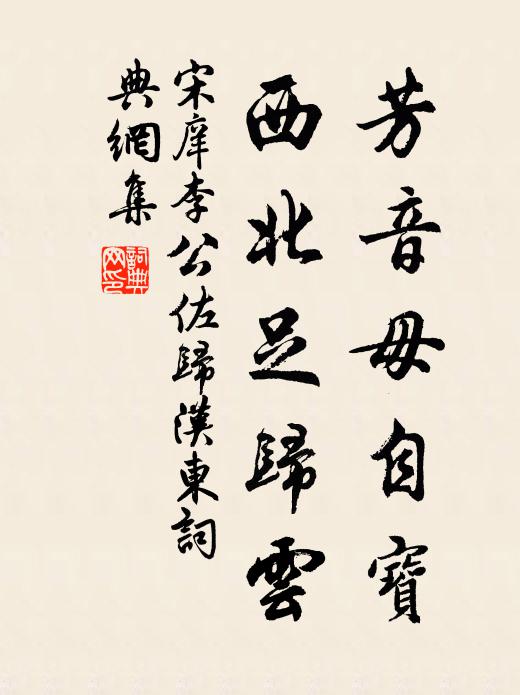 芳音毋自寶
西北足歸雲
宋庠李公佐歸漢東詞
典網集
詞典網印